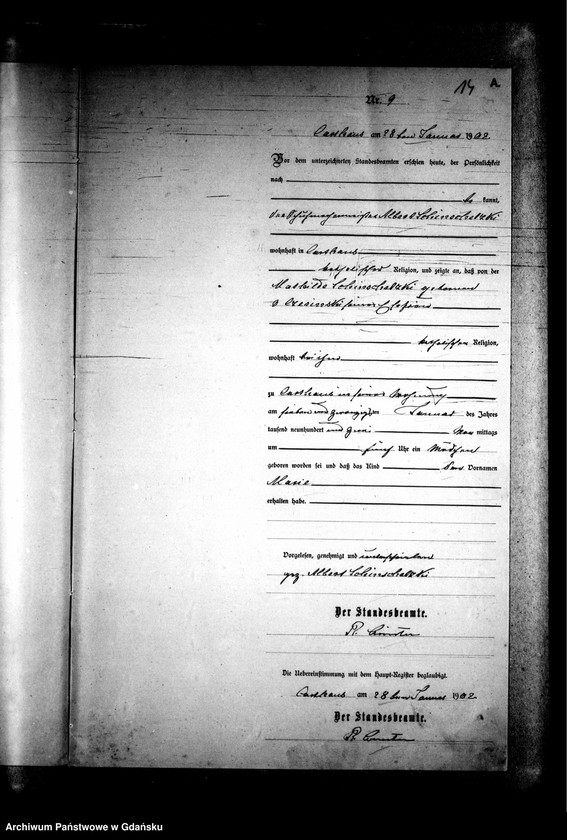 14 A
Nr. 9
Carthaus am 28ten Januar 1902.
Vor dem unterzeichneten Standesbeamten erschien heute, der Persönlichkeit
nach
be kannt,
der Schuhmachermeister Albert
wohnhaft in Carthaus
katholischer Religion, und zeigte an, daß von der
Mathilde geborenen
seiner Ehefrau
katholischer Religion,
wohnhaft bei ihm
zu Carthaus in seiner Wohnung
am sieben und zwanzigsten Januar des Jahres
tausend neunhundert und zwei Vor mittags
um fünf Uhr ein Mädchen
geboren worden sei und daß das Kind den Vornamen
Marie
erhalten habe.
Vorgelesen, genehmigt und unterschrieben
gez. Albert
Der Standesbeamte.
Die Uebereinstimmung mit dem Haupt-Register beglaubigt.
Carthaus am 28ten Januar 1902
Der Standesbeamte.
Archiwum Państwowe w Gdańsku